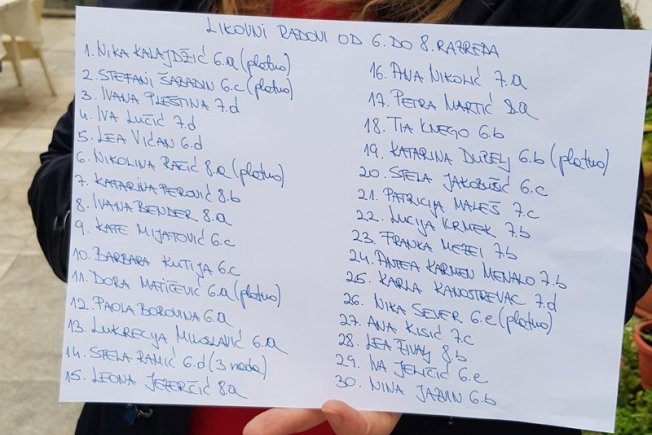 LIKOVNI RADOVI OD 6. DO 8. RAZREDA
1. NIKA KALAJDŽIĆ 6.a (platno)
2. STEFANI ŠABADIN 6.c (platno)
3. IVANA PLEŠTINA 7.d
4. IVA LUČIĆ 7.d
5. LEA VIĆAN 6.d
6. NIKOLINA RACIĆ 8.a (platno)
7. KATARINA PEROVIĆ 8.b
8. IVANA BENDER 8.a
9. KATE MIJATOVIĆ 6.c
10. BARBARA KUTIJA 6.c
11. DORA MATIČEVIĆ 6.a (platno)
12. PAOLA BOROVINA 6.a
13. LUKRECIJA MILOSLAVIĆ 6.a
14. STELA RAMIĆ 6.d (3 rada)
15. LEONA JEZERČIĆ 8.a
16. ANA NIKOLIĆ 7.a
17. PETRA MARTIĆ 8.a
18. TIA KNEGO 6.b
19. KATARINA DUPELJ 6.b (platno)
20. STELA JAKOBUŠIĆ 6.c
21. PATRICIJA MALEŠ 7.c
22. LUCIJA KRMEK 7.b
23. FRANKA MEZEI 7.b
24. ANTEA KARMEN MENALO 7.b
25. KARLA KANOSTREVAC 7.d
26. NIKA SEVER 6.e (platno)
27. ANA KISIĆ 7.c
28. LEA 8.b
29. IVA JELČIĆ 6.e
30. NINA JAZVIN 6.b